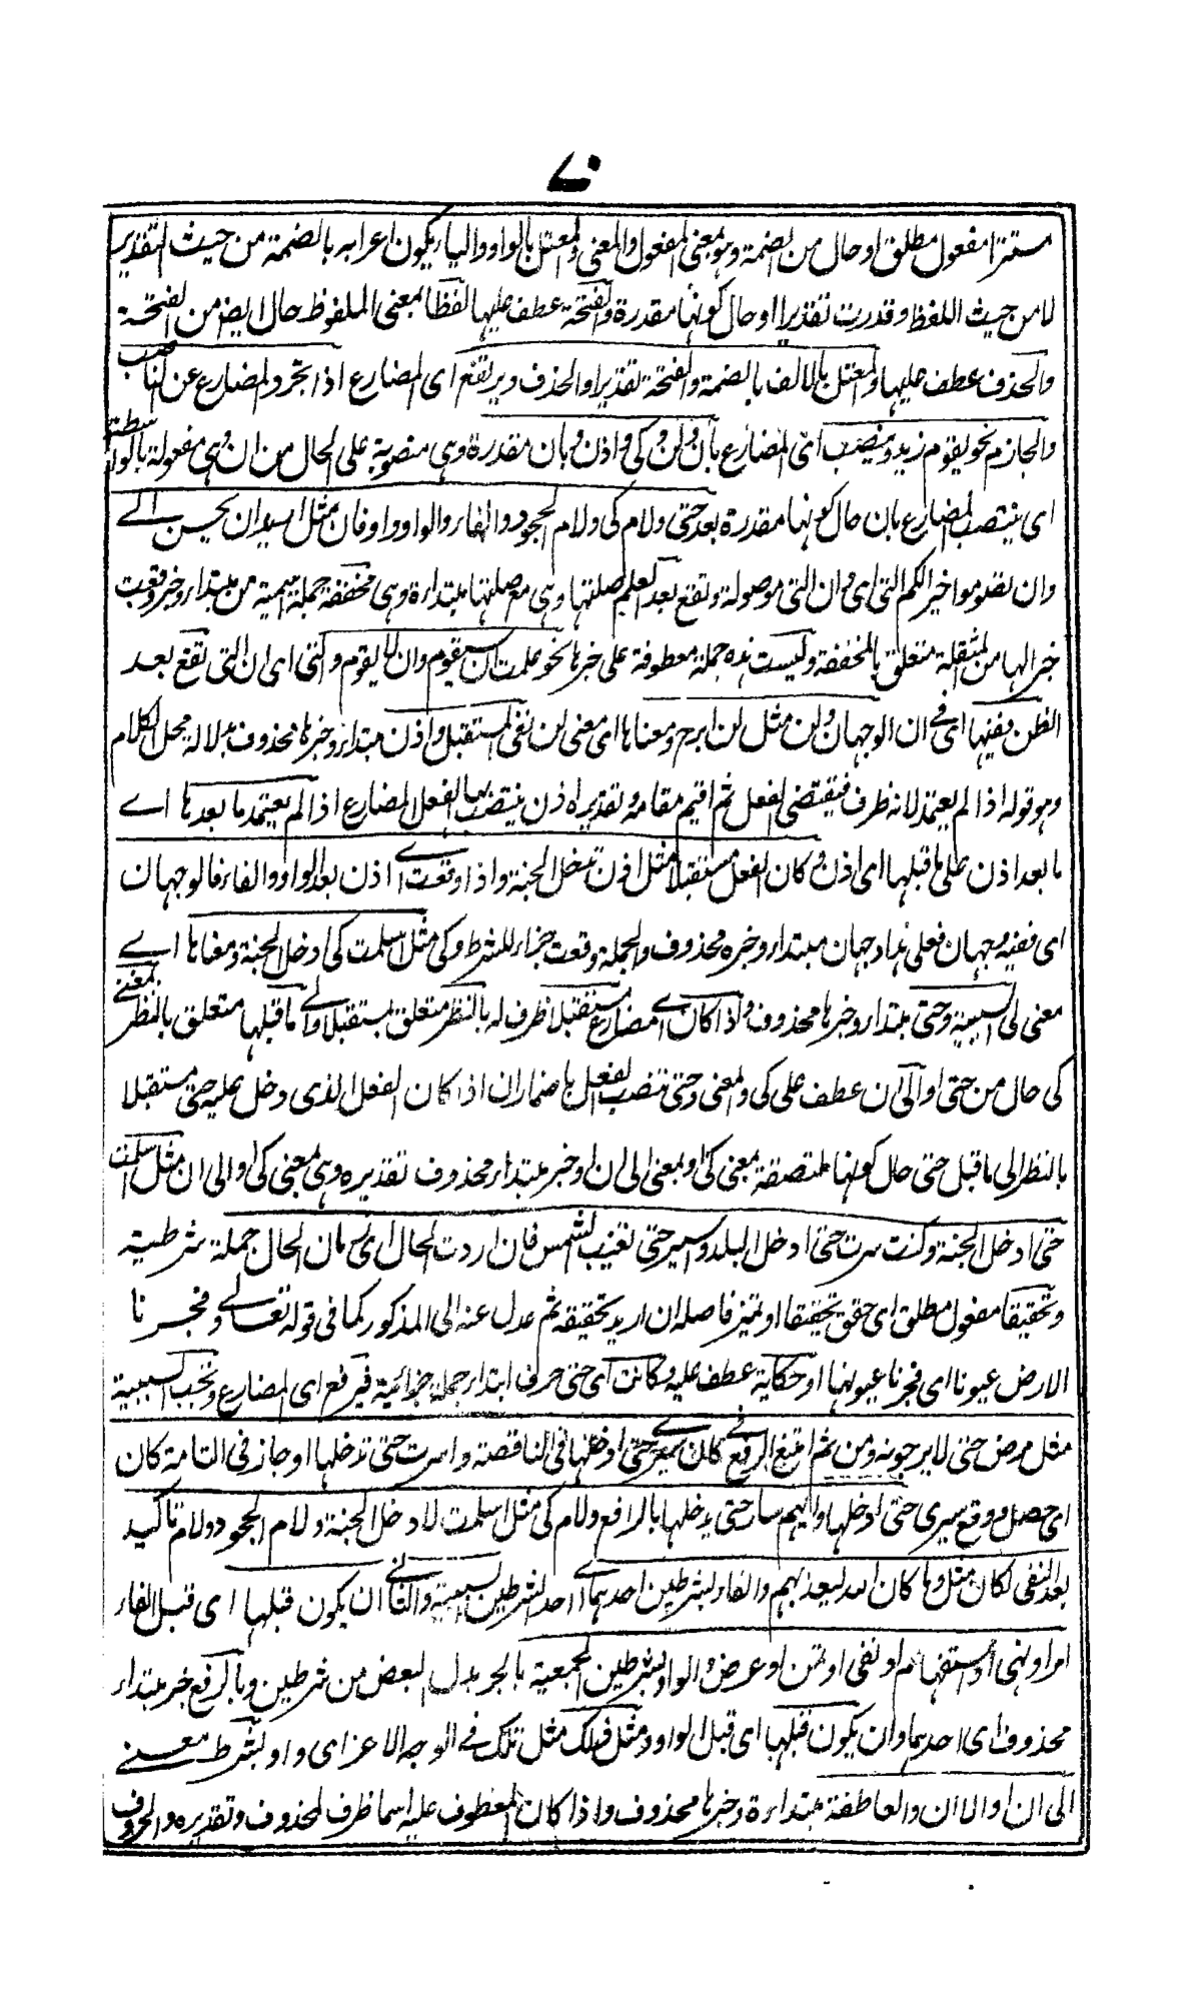 ۷۰
مستترا مفعول مطلق او حال من الضمة وهو بمعنى المفعول والمعنى والمعتل بالواو والياء يكون اعرابه بالضمة من حيث التقدير
لا من حيث اللفظ وقدرت تقديرا او حال كونها مقدرة والفتحة عطف عليها لفظا بمعنى الملفوظ حال ايضا من الفتحة
والحذف عطف عليها والمعتل بالالف بالضمة والفتحة تقديرا والحذف ويرتفع اى المضارع اذا تجرد المضارع عن الناصب
والجازم نحو يقوم زيد وينصب اى المضارع بان ولن وكى واذن وبان مقدرة وهى منصوبة على الحال من ان وهى مفعولة بالواسطة
اى ينتصب المضارع بان حال كونها مقدرة بعد حتى ولام كى ولام الجحود والفاء والواو واو فان مثل اريد ان يحسن الے
وان تصوموا خير الكم التى اى وان التى موصولة وتقع بعد العلم صلتها وهى مع صلتها مبتداءة وهى مخففة جملة اسمية من مبتداء وخبر وقعت
خبرا لها من المثقلة متعلق بالمخففة وليست هذه جملة معطوفة على خبرها نحو علمت ان سيقوم وان لا يقوم والتى اى ان التى تقع بعد
الظن ففيها اى فے ان الوجهان ولن مثل لن ابرح ومعناها اى معنى لن نفى المستقبل واذن مبتداء وخبرها محذوف بدلالة محل الكلام
وهو قوله اذا لم يعتمد لانه ظرف فيقتضى الفعل ثم اقيم مقامه وتقديره اذن ينتصب بها الفعل المضارع اذا لم يعتمد ما بعدها اے
ما بعد اذن على ما قبلها اى اذن وكان الفعل مستقبلا مثل اذن تدخل الجنة واذا وقعت اے اذن بعد الواو والفاء فالوجهان
اى ففيه وجهان فعلى هذا وجهان مبتداء وخبره محذوف والجملة وقعت جزاء للشرط وكى مثل اسلمت كى ادخل الجنة ومعناها اے
معنى كى السببية وحتى مبتداء وخبرها محذوف واذا كان اے مضارع مستقبلا ظرف له بالنظر متعلق بمستقبلا والے ما قبلها متعلق بالنظر بمعنے
كى حال من حتى او الى ان عطف على كى والمعنى وحتى تنصب الفعل باضمار ان اذا كان الفعل الذى دخل عليه حتى مستقبلا
بالنظر الى ما قبل حتى حال كونها ملتصقة بمعنى كى او بمعنى الى ان او خبر مبتداء محذوف تقديره وهى بمعنى كى او الى ان مثل اسلمت
حتى ادخل الجنة وكنت سرت حتى ادخل البلد واسير حتى تغيب الشمس فان اردت الحال اى زمان الحال جملة شرطية
وتحقيقا مفعول مطلق اى حقق تحقيقا او تميز فاصله ان اريد تحقيقه ثم عدل عنه الى المذكور كما فى قوله تعالے وفجرنا
الارض عيونا اى فجرنا عيونها او حكاية عطف عليه وكانت اى حتى حرف ابتداء جملة جزائية فيرفع اى المضارع وتجب السببية
مثل مرض حتى لا يرجونه ومن ثم امتنع الرفع فے كان سيرے حتى ادخلها فى الناقصة واسرت حتى تدخلها او جاز فى التامة كان
اى حصل ووقع سيرى حتى ادخلها وايهم سار حتى يدخلها بالرافع ولام كى مثل اسلمت لادخل الجنة ولام الجحود ولام تاكيد
بعد النفى لكان مثل وما كان الله ليعذبهم والفاء بشرطين احدهما اے احد الشرطين السببية والثانے ان يكون قبلها اى قبل الفاء
امر او نهى او استفهام او نفى او تمن او عرض والواو بشرطين الجمعية بالجر بدل البعض من شرطين وبالرفع خبر مبتداء
محذوف اى احدهما وان يكون قبلها اى قبل الواو ومثل ذلك مثل تلك فے الوجه الاعراى واو بشرط معنے
الى ان او الا ان والعاطفة مبتداءة وخبرها محذوف واذا كان المعطوف عليه اسما ظرف لمحذوف وتقديره والحروف